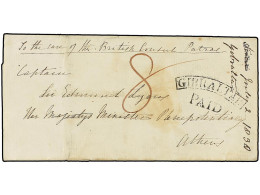 To the care of the British Consul Patras
Captain
Sir Edmund Lyons
Her Majesty's Minister Plenipotentiary
Athens
8
GIBRALTAR
PAID
Gibraltar
1838